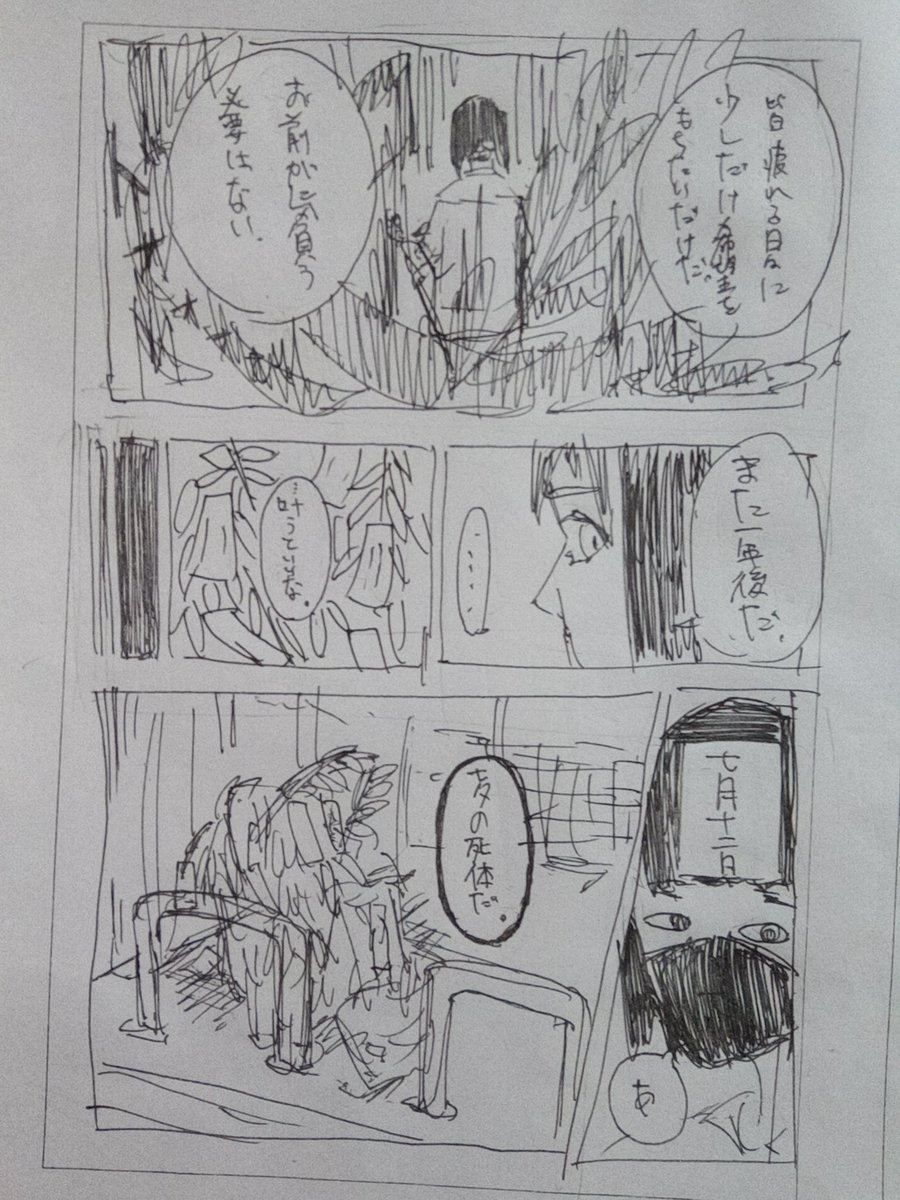 皆疲れる日々に
少しだけ希望を
もちたいだけだ。
お前が背負う
必要はない.
また一年後だ.
‥‥
…叶うといいな。
七月十二日
あ
七夕の死体だ。